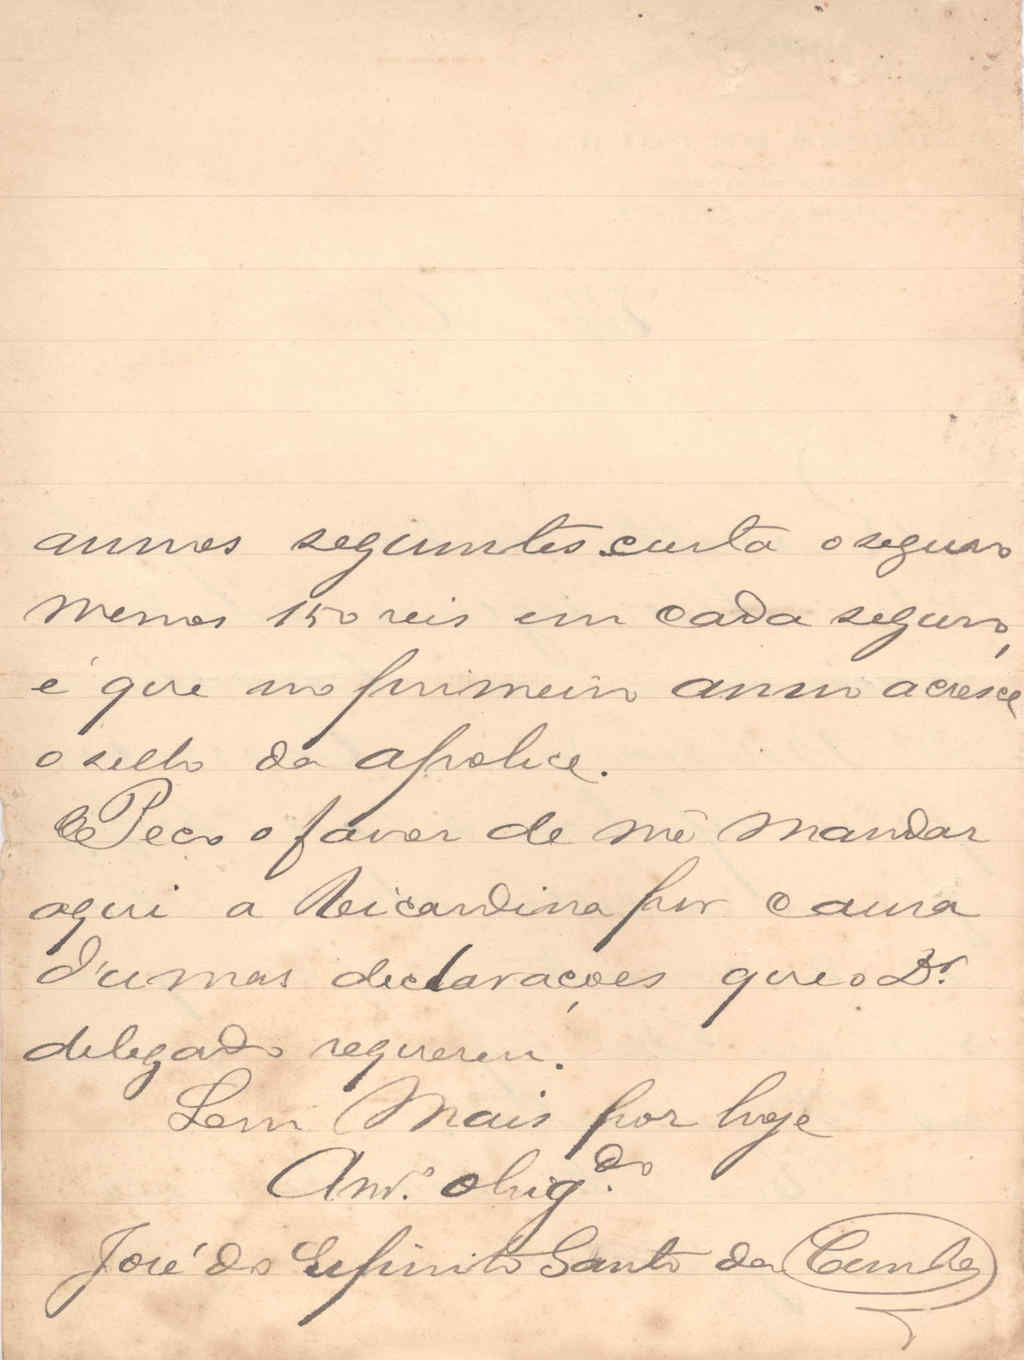 annos seguintes custa o seguro
menos 150 reis em cada seguro,
é que no primeiro anno acresce
o sello da apolice.
Peço o favor de me mandar
aqui a Ricardina por causa
d'umas declarações que o Dr.
delegado requereu.
Sem mais por hoje
Amº. obrigdo.
José do Espirito Santo da Cunha